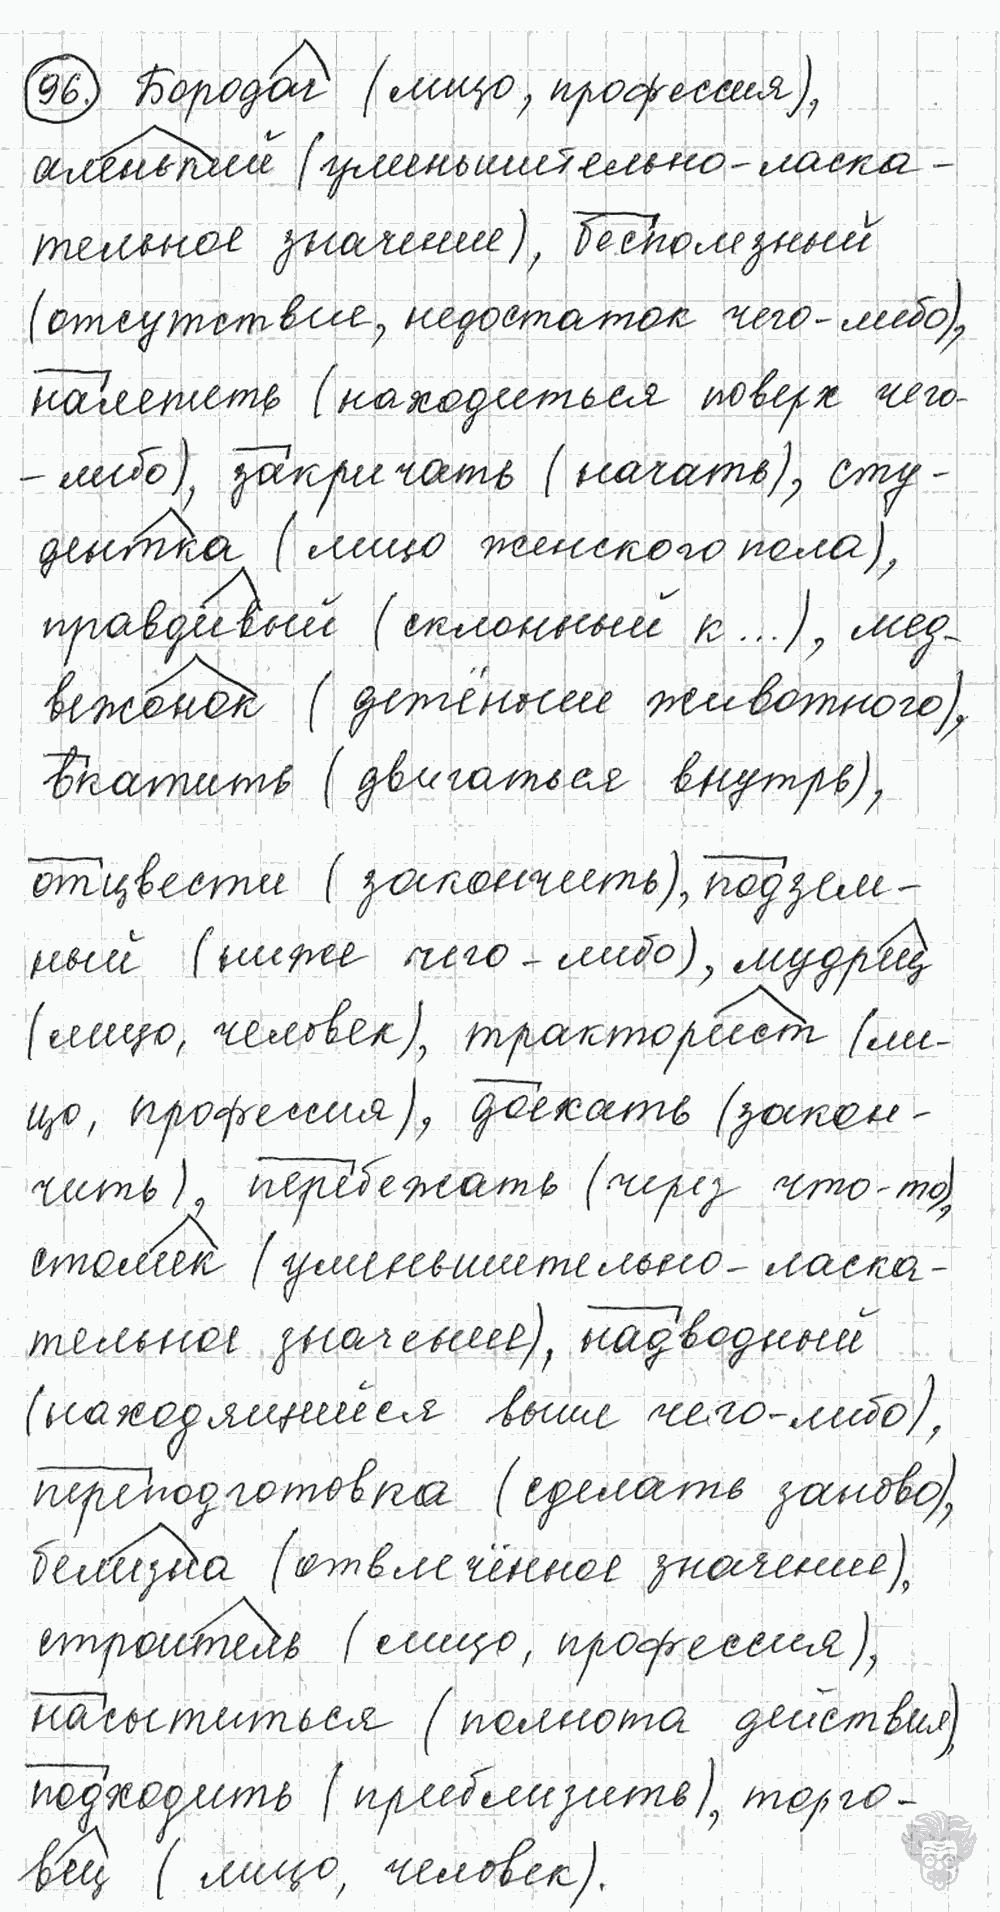 96. Бородач (лицо, профессия),
аленький (уменьшительно-ласка-
тельное значение), бесполезный
(отсутствие, недостаток чего-либо),
налететь (находиться поверх чего-
-либо), закричать (начать), сту-
дентка (лицо женского пола),
правдивый (склонный к ...), мед-
вежонок (детёныш животного),
вкатить (двигаться внутрь),
отцвести (закончить), подзем-
ный (ниже чего-либо), мудрец
(лицо, человек), тракторист (ли-
цо, профессия), доехать (закон-
чить), перебежать (через что-то),
столик (уменьшительно-ласка-
тельное значение), надводный
(находящийся выше чего-либо),
переподготовка (сделать заново),
белизна (отвлечённое значение),
строитель (лицо, профессия),
насытиться (полнота действия),
подходить (приблизить), торго-
вец (лицо, человек).